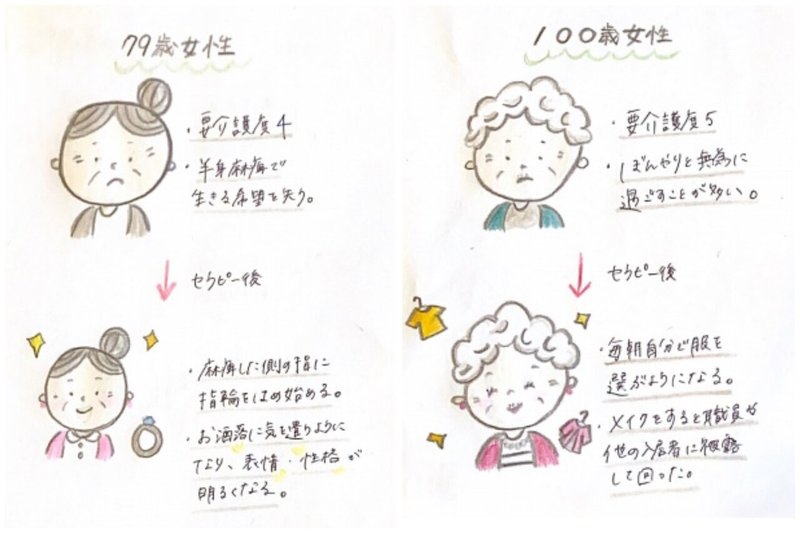 79歳女性
・要介護度4
・半身麻痺で
生きる希望を失う。
セラピー後
・麻痺した側の指に
指輪をはめ始める。
・お洒落に気を遣うように
なり、表情・性格が
明るくなる。
100歳女性
・要介護度5
・ぼんやりと無為に
過ごすことが多い。
セラピー後
・毎朝自分で服を
選ぶようになる。
・メイクをすると職員や
他の入居者に披露
して回った。